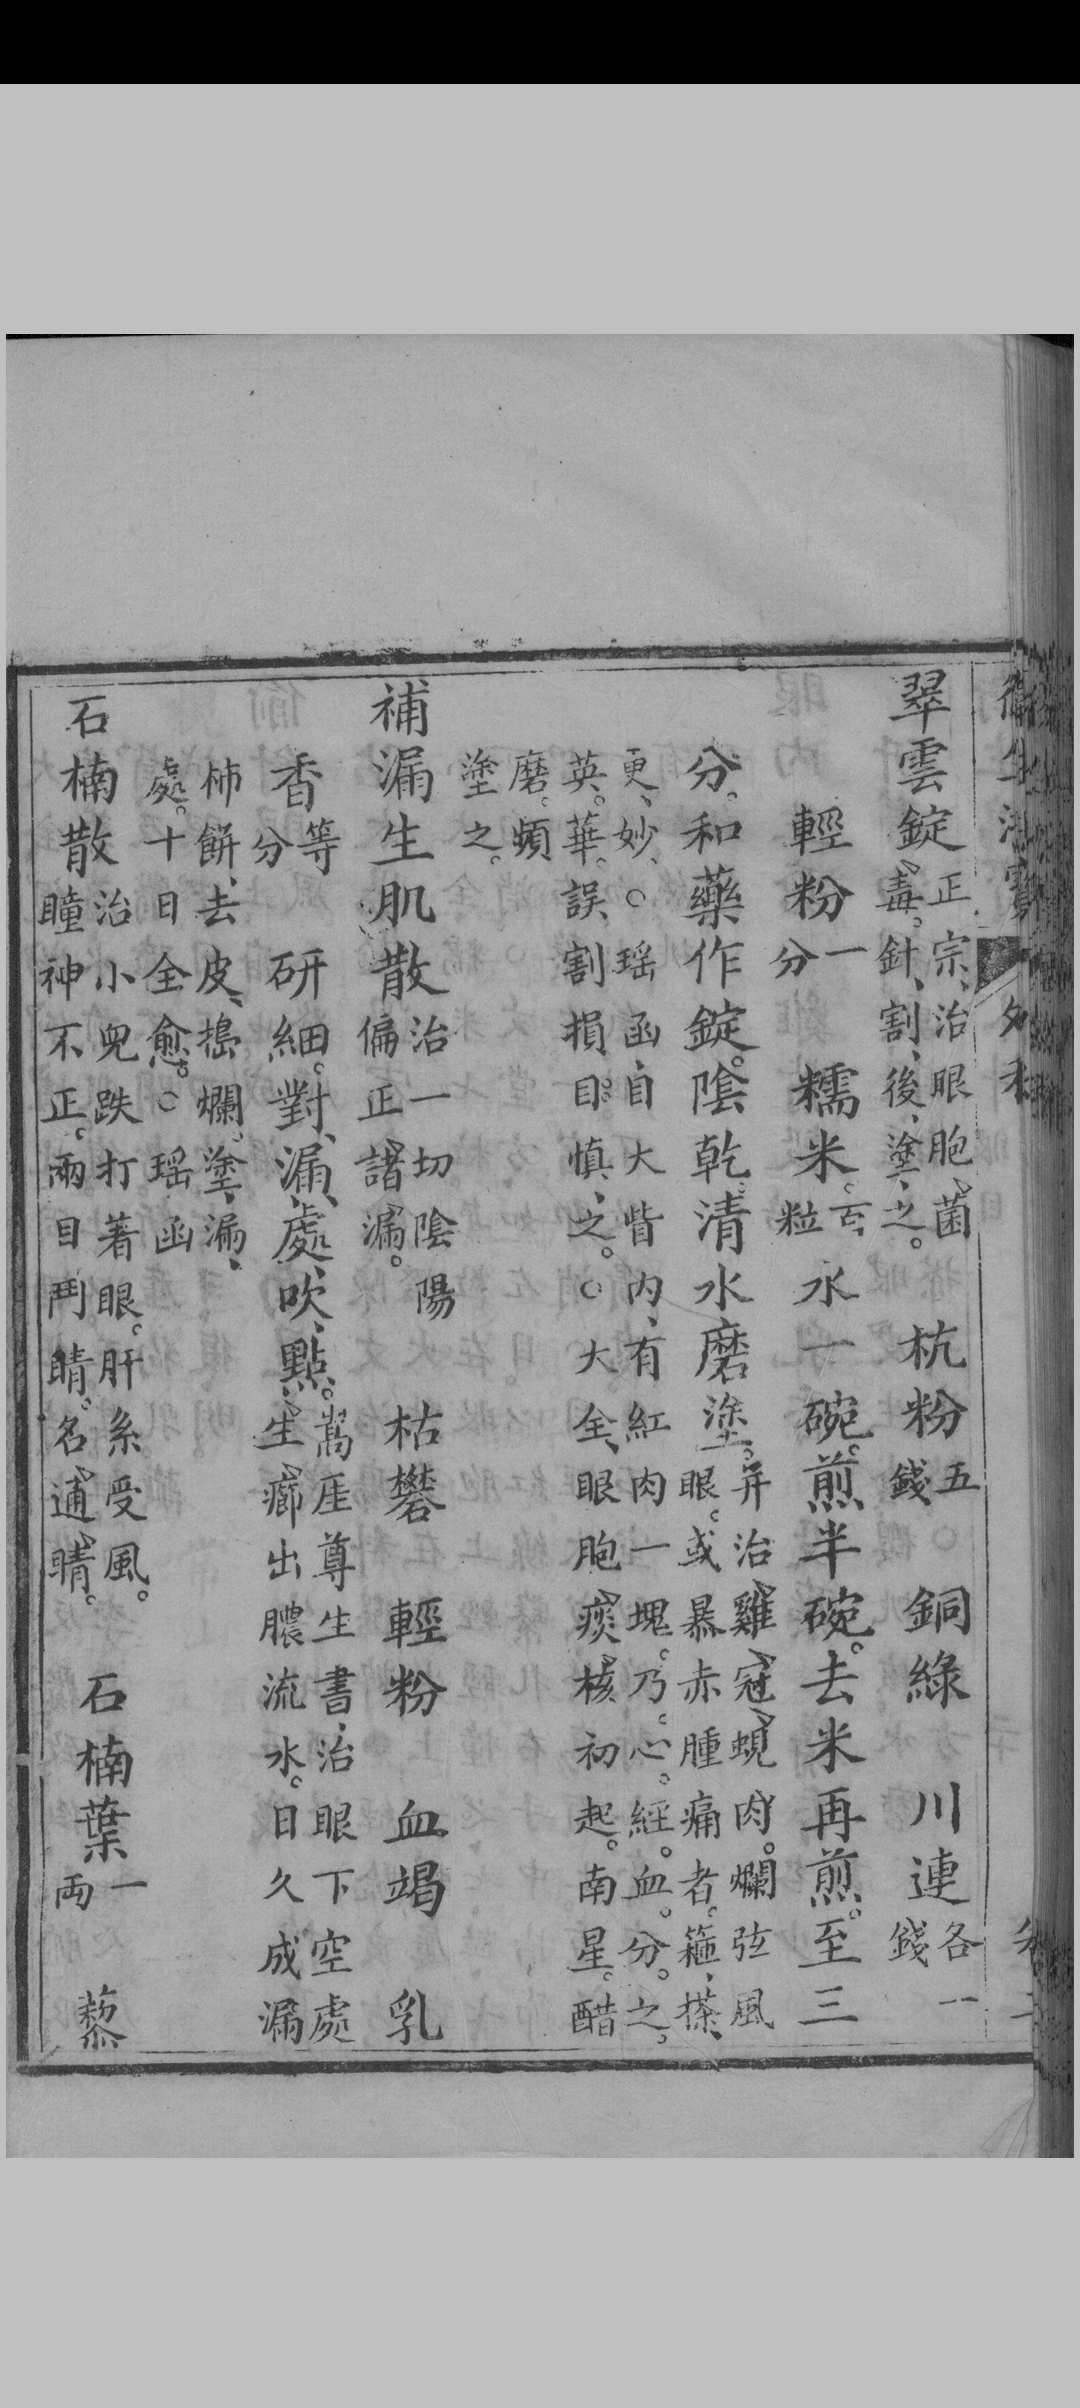 翠雲錠正宗、治眼胞菌毒。針、割、後、塗、之。　杭粉五錢　銅綠　川連各一錢
輕粉一分　糯米。百粒　水一碗。煎半碗。去米再煎。至三
分。和藥作錠。陰乾。清水磨塗。并治雞冠蜆肉。爛弦風眼。或暴赤腫痛者。箍、搽、
更、妙、○瑤函、自大眥内、有紅肉一塊。乃心。經。血。分。之。英。華。誤割損目。慎、之。○大全、眼胞痰核初起。南星。醋
磨。頻塗之。
補漏生肌散治一切陰陽偏正諸漏。　枯礬　輕粉　血竭　乳
香等分　研細。對、漏、處、吹、點。嵩厓尊生書、治眼下空處生癤出膿流水。日久成漏
柿餅、去皮、搗爛。塗、漏、處。十日全愈。○瑤函
石楠散治小兒跌打著眼。肝系受風。瞳神不正。兩目鬥睛。名通睛。　石楠葉一両　藜